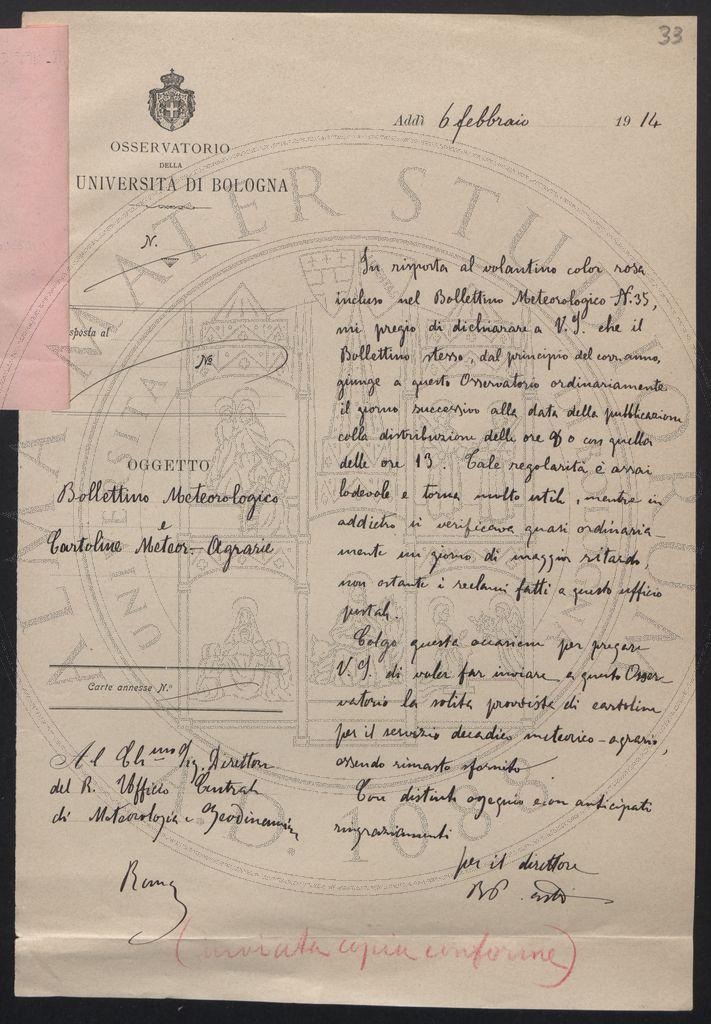 33
Addì 6 febbraio 1914
OSSERVATORIO
DELLA
UNIVERSITÀ DI BOLOGNA
N.
sposta al
No
OGGETTO
Bollettino Meteorologico
e
Cartoline Meteor-Agrarie
Carte annesse N.o
Al Ch.mo Sig. Direttore
del R. Ufficio Centrale
di Meteorologia e Geodinamica
Roma
In risposta al volantino color rosa
incluso nel Bollettino Meteorologico N. 35,
mi pregio di dichiarare a V. S. che il
Bollettino stesso, dal principio del corr. anno,
giunge a questo Osservatorio ordinariamente
il giorno successivo alla data della pubblicazione
colla distribuzione delle ore 8 o con quella
delle ore 13. Tale regolarità è assai
lodevole e torna molto utile, mentre in
addietro si verificava quasi ordinaria-
mente un giorno di maggior ritardo,
non ostante i reclami fatti a questo ufficio
postale.
Colgo questa occasione per pregare
V. S. di voler far inviare a questo Osser-
vatorio la solita provvista di cartoline
per il servizio decadico meteorico-agrario,
essendo rimasto sfornito.
Con distinto ossequio e con anticipati
ringraziamenti
per il direttore
(inviata copia conforme)
ALMA MATER STUDIORUM
A.D. 1088